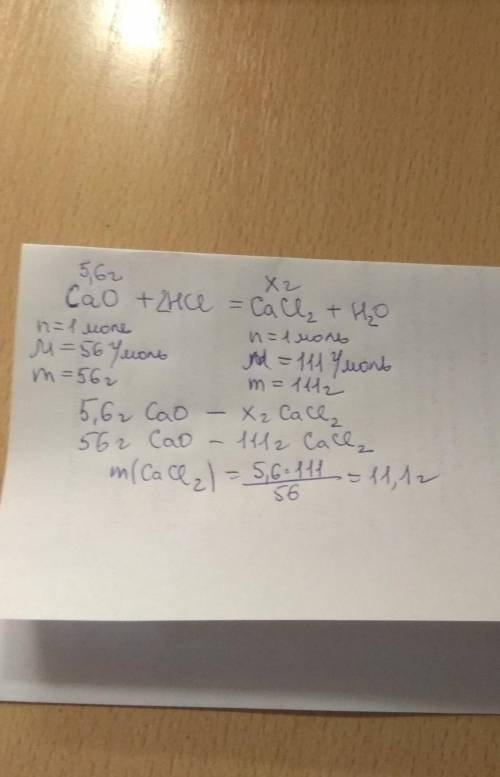 5,6г х г
CaO + 2HCl = CaCl₂ + H₂O
n = 1 моль n = 1 моль
M = 56 г/моль M = 111 г/моль
m = 56г m = 111г
5,6г CaO – х г CaCl₂
56г CaO – 111г CaCl₂
m(CaCl₂) = 5,6·111 / 56 = 11,1г